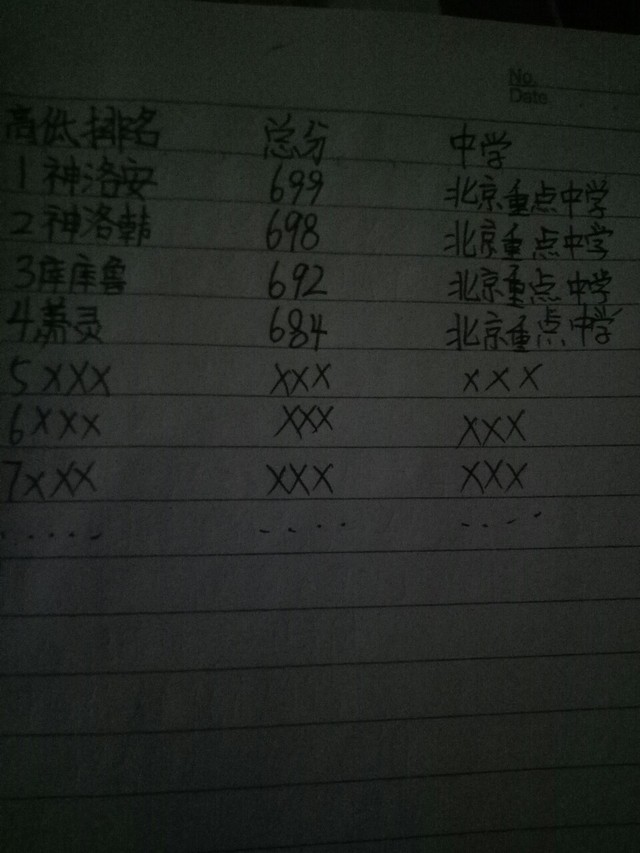 No.
Date
高低排名 总分 中学
1神洛安 699 北京重点中学
2神洛韩 698 北京重点中学
3库库鲁 692 北京重点中学
4萧灵 684 北京重点中学
5XXX XXX XXX
6XXX XXX XXX
7XXX XXX XXX
..... .... ....